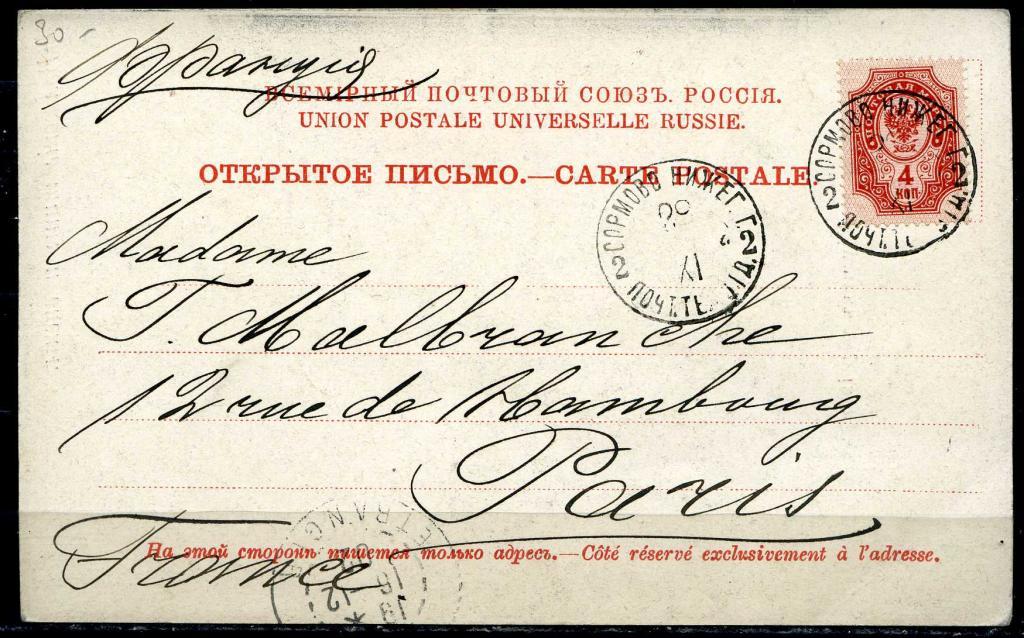 30-
Франція
ВСЕМІРНЫЙ ПОЧТОВЫЙ СОЮЗЪ. РОССІЯ.
UNION POSTALE UNIVERSELLE RUSSIE.
ОТКРЫТОЕ ПИСЬМО.—CARTE POSTALE.
4
КОП
СОРМОВО НИЖЕГ. Г.
2 2
СОРМОВО НИЖЕГ. Г.
2 2
ПОЧТ.ТЕ
Madame
T. Malbranche
12 rue de Hambourg
Paris
France
На этой сторонѣ пишется только адресъ.—Côté réservé exclusivement à l'adresse.